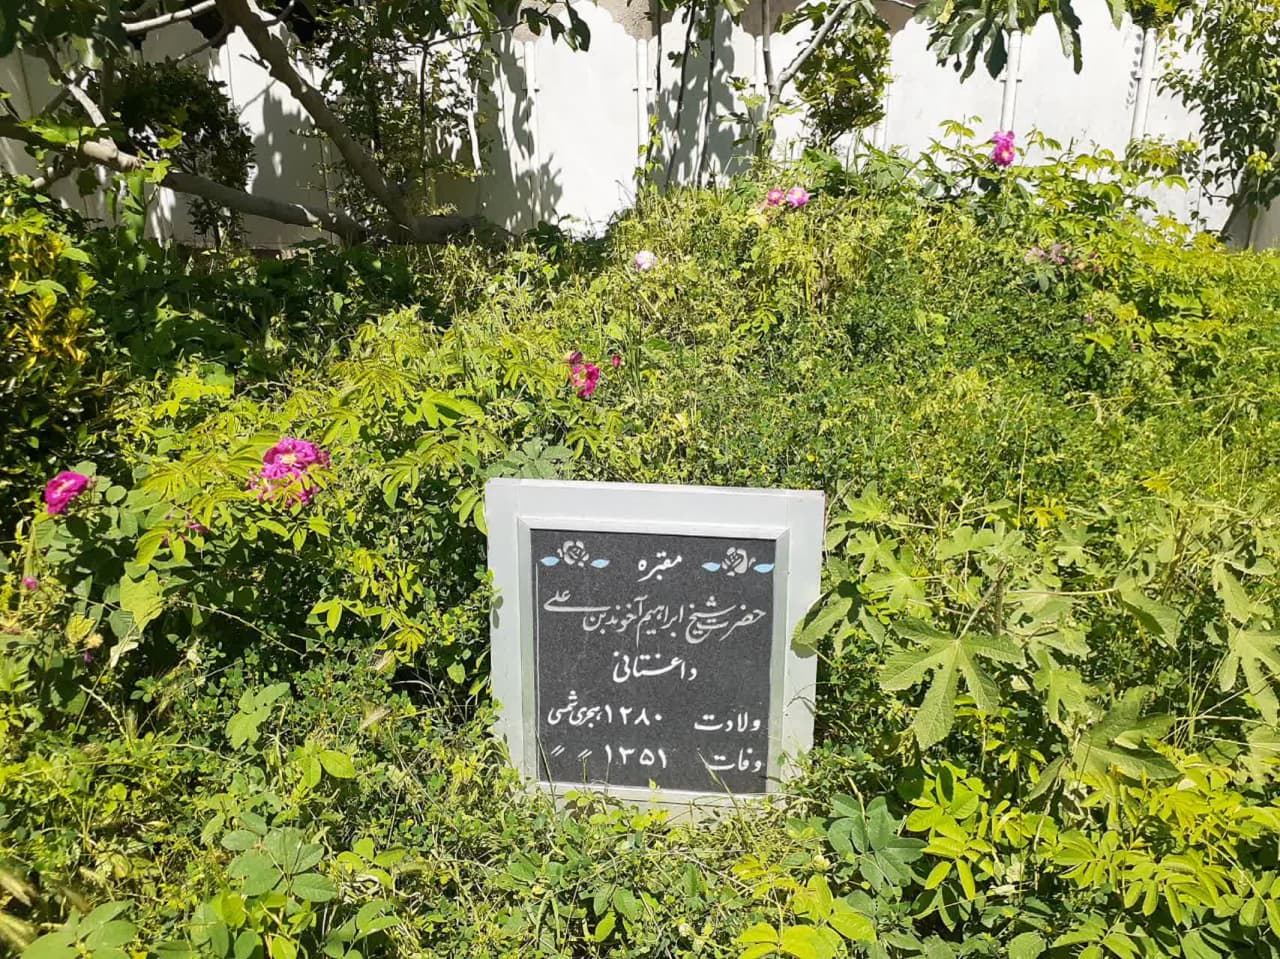 مقبره
حضرت شیخ ابراهیم آخوند بن علی
داغستانی
ولادت ۱۲۸۰ هجری شمسی
وفات ۱۳۵۱ " "